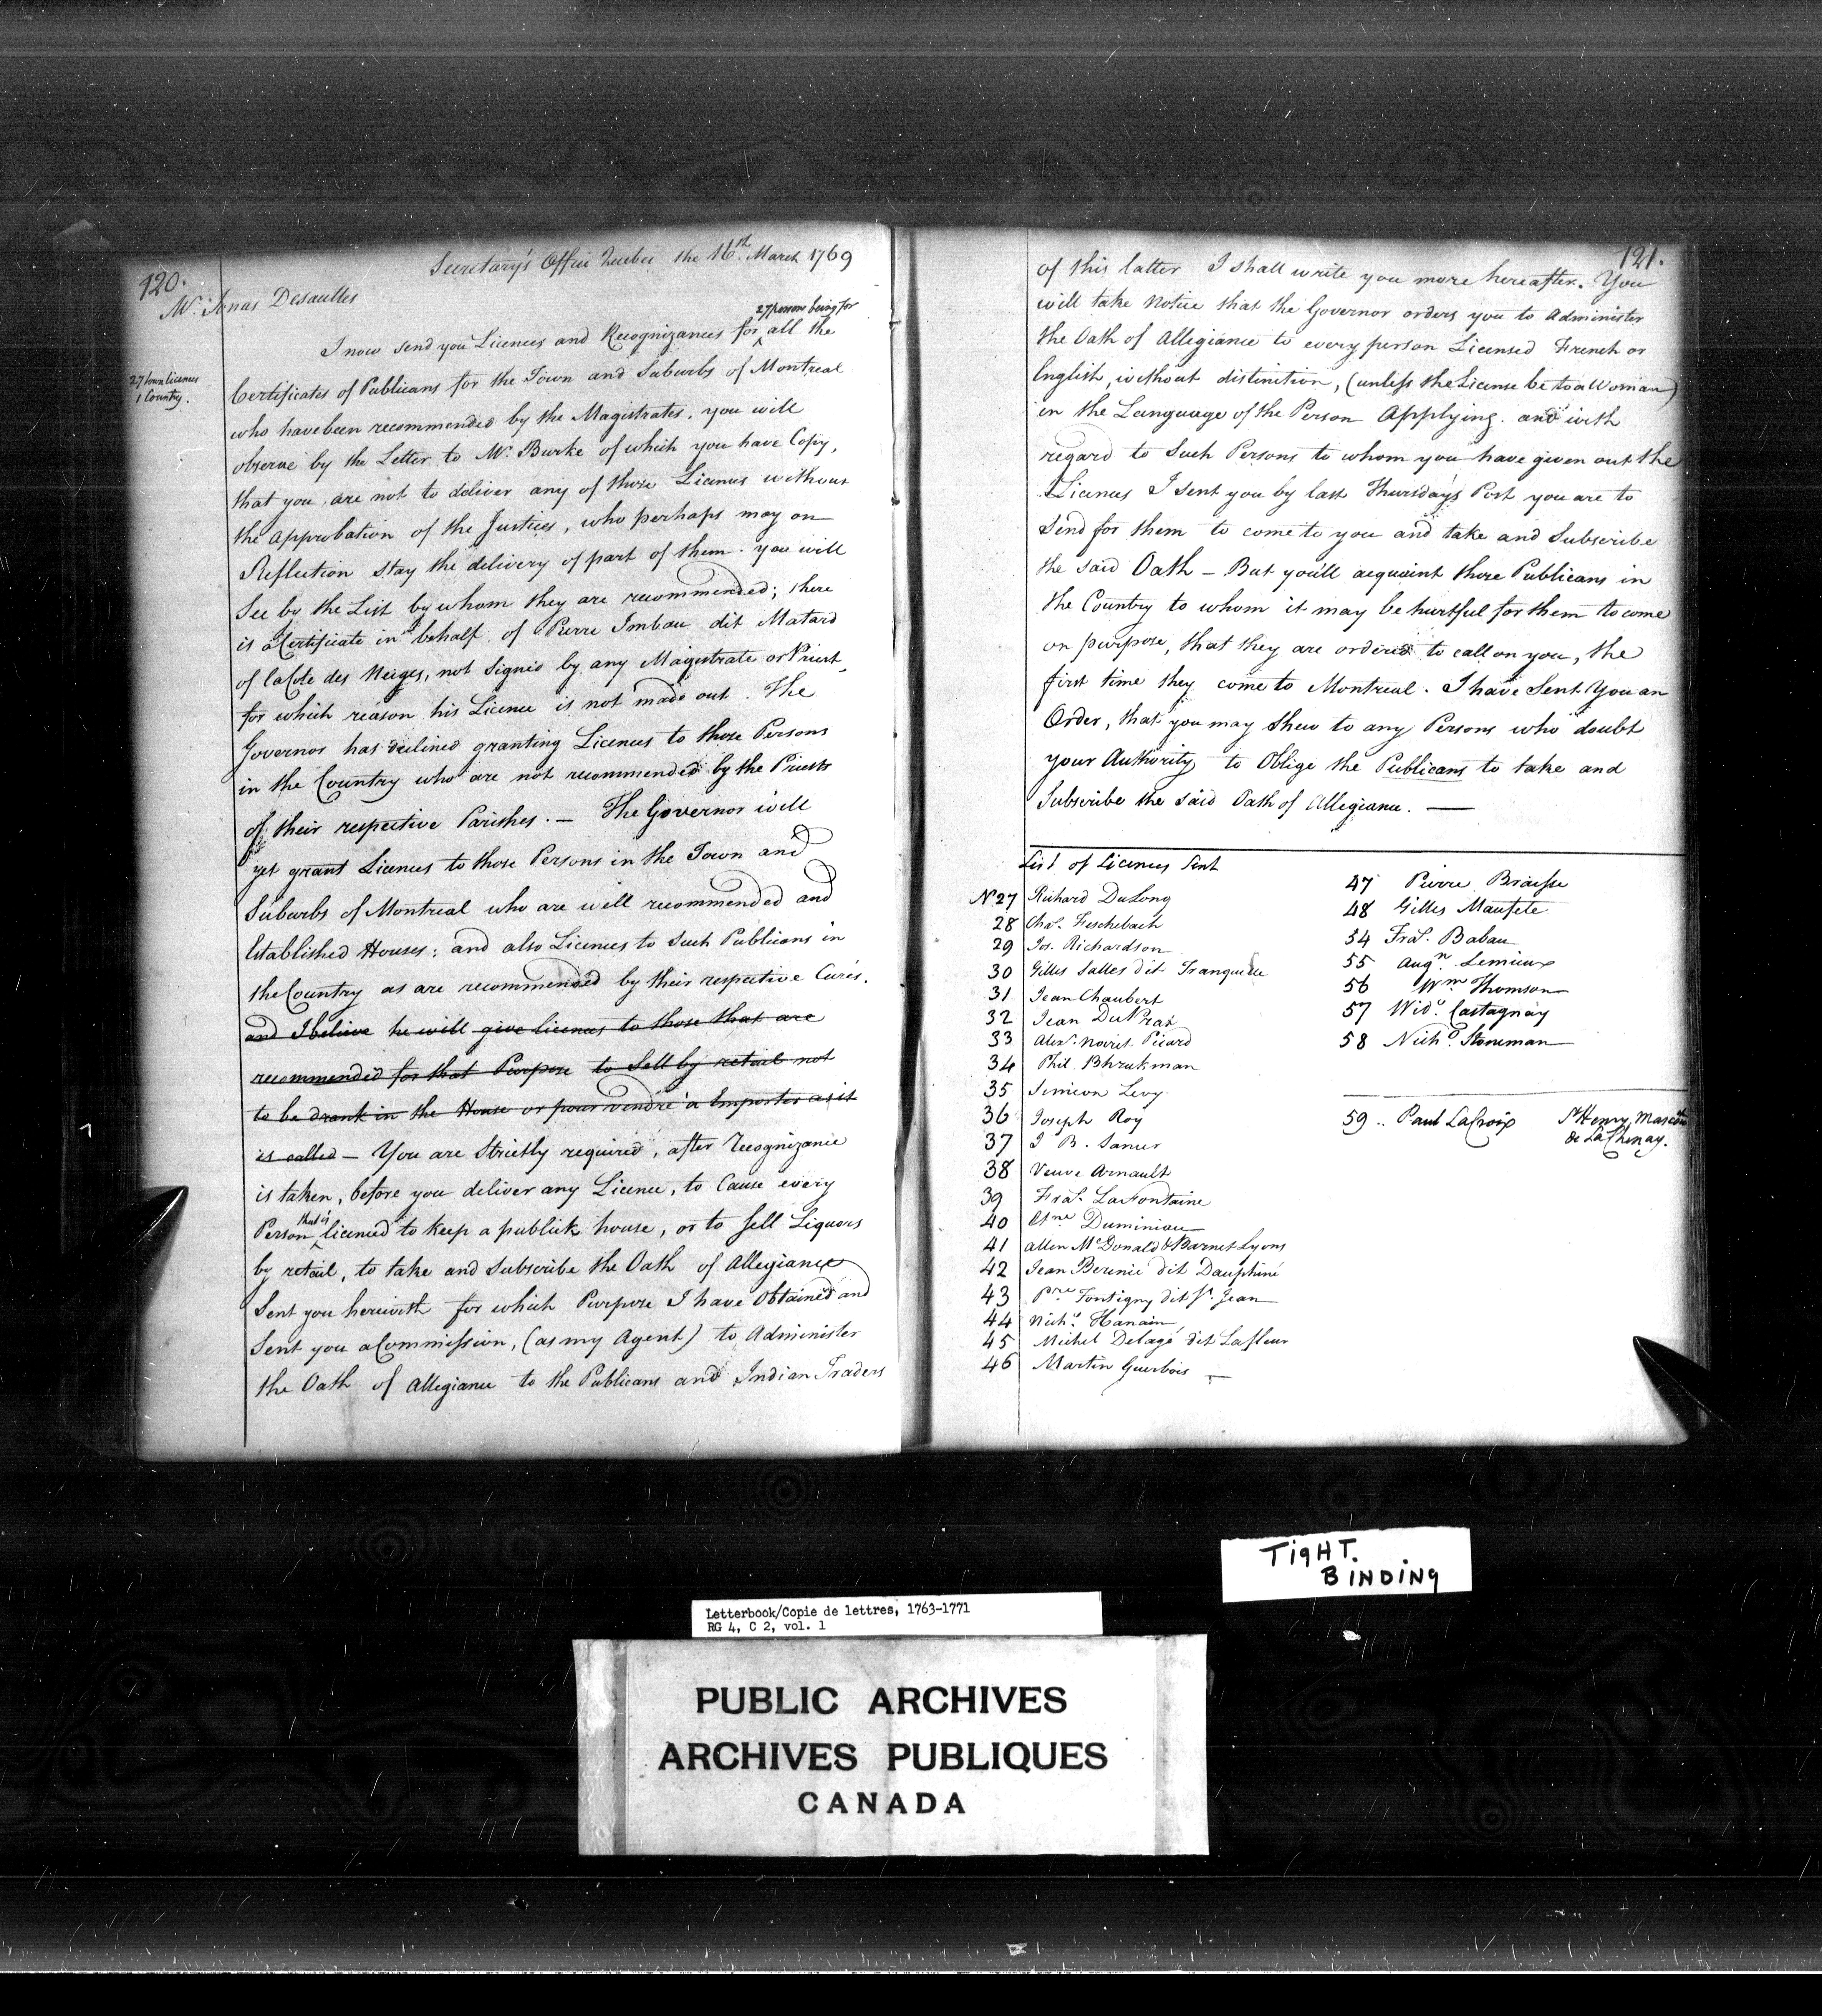 120.
Secretary's Office Quebec the 16th. March 1769
Mr. Jonas Desaulles
27 persons being for
I now send you Licences and Recognizances for all the
27 town licences
1 Country.
Certificates of Publicans for the Town and Suburbs of Montreal
who have been recommended by the Magistrates, you will
observe by the Letter to Mr. Burke of which you have Copy,
that you are not to deliver any of those Licences without
the Approbation of the Justices, who perhaps may on
Reflection stay the delivery of part of them. you will
See by the List by whom they are recommended; there
is a Certificate in behalf of Pierre Imbau dit Matard
of la Cote des Neiges, not Signed by any Magistrate or Priest
for which reason his Licence is not made out. The
Governor has declined granting Licences to those Persons
in the Country who are not recommended by the Priests
of their respective Parishes. — The Governor will
yet grant Licences to those Persons in the Town and
Suburbs of Montreal who are well recommended and
Established Houses; and also Licences to Such Publicans in
the Country as are recommended by their respective Curés.
and I believe he will give licences to those that are
recommended for that Purpose to Sell by retail not
to be drank in the House or pour vendre a Emporter as it
is called — You are Strictly required, after Recognizance
is taken, before you deliver any Licence, to Cause every
that is
Person licenced to keep a publick house, or to sell Liquors
by retail, to take and Subscribe the Oath of Allegiance
Sent you herewith for which Purpose I have Obtained and
Sent you a Commission, (as my Agent) to Administer
the Oath of Allegiance to the Publicans and Indian Traders
121.
of this latter I shall write you more hereafter. You
will take Notice that the Governor orders you to Administer
the Oath of Allegiance to every person Licensed French or
English, without distinction, (unless the License be to a Woman)
in the Language of the Person Applying. and with
regard to Such Persons to whom you have given out the
Licences I sent you by last Thursday's Post you are to
Send for them to come to you and take and Subscribe
the said Oath — But you'll acquaint those Publicans in
the Country to whom it may be hurtful for them to come
on purpose, that they are ordered to call on you, the
first time they come to Montreal. I have Sent You an
Order, that you may shew to any Persons who doubt
your Authority to Oblige the Publicans to take and
Subscribe the said Oath of Allegiance. —
List of Licences Sent
No 27 Richard DuLong
28 Chas. Feschebach
29 Jos. Richardson
30 Gilles Salles dit Tranquille
31 Jean Chaubert
32 Jean DuPrat
33 Alexr. Novret Picard
34 Phil
35 Simeon Levy
36 Joseph Roy
37 J B. Sanur
38 Veuve Arnault
39 Fras. LaFontaine
40 Etne Duminiau
41 Allen McDonald & Barnet Lyons
42 Jean Berinié dit Dauphiné
43 Pre Fontigny dit St. Jean
44 Nichs. Hanain
45 Michel Delagé dit Lafleur
46 Martin Guerbois —
47 Pierre Braisse
48 Gilles Maufete
54 Fras. Babau
55 Augn. Lemieux
56 Wm Thomson
57 Widw. Castagnay
58 Nichs. Stoneman
59 .. Paul LaCroix St Henry, Mascou
de LaChenay.
TigHT.
BINDINg
Letterbook/Copie de lettres, 1763-1771
RG 4, C 2, vol. 1
PUBLIC ARCHIVES
ARCHIVES PUBLIQUES
CANADA